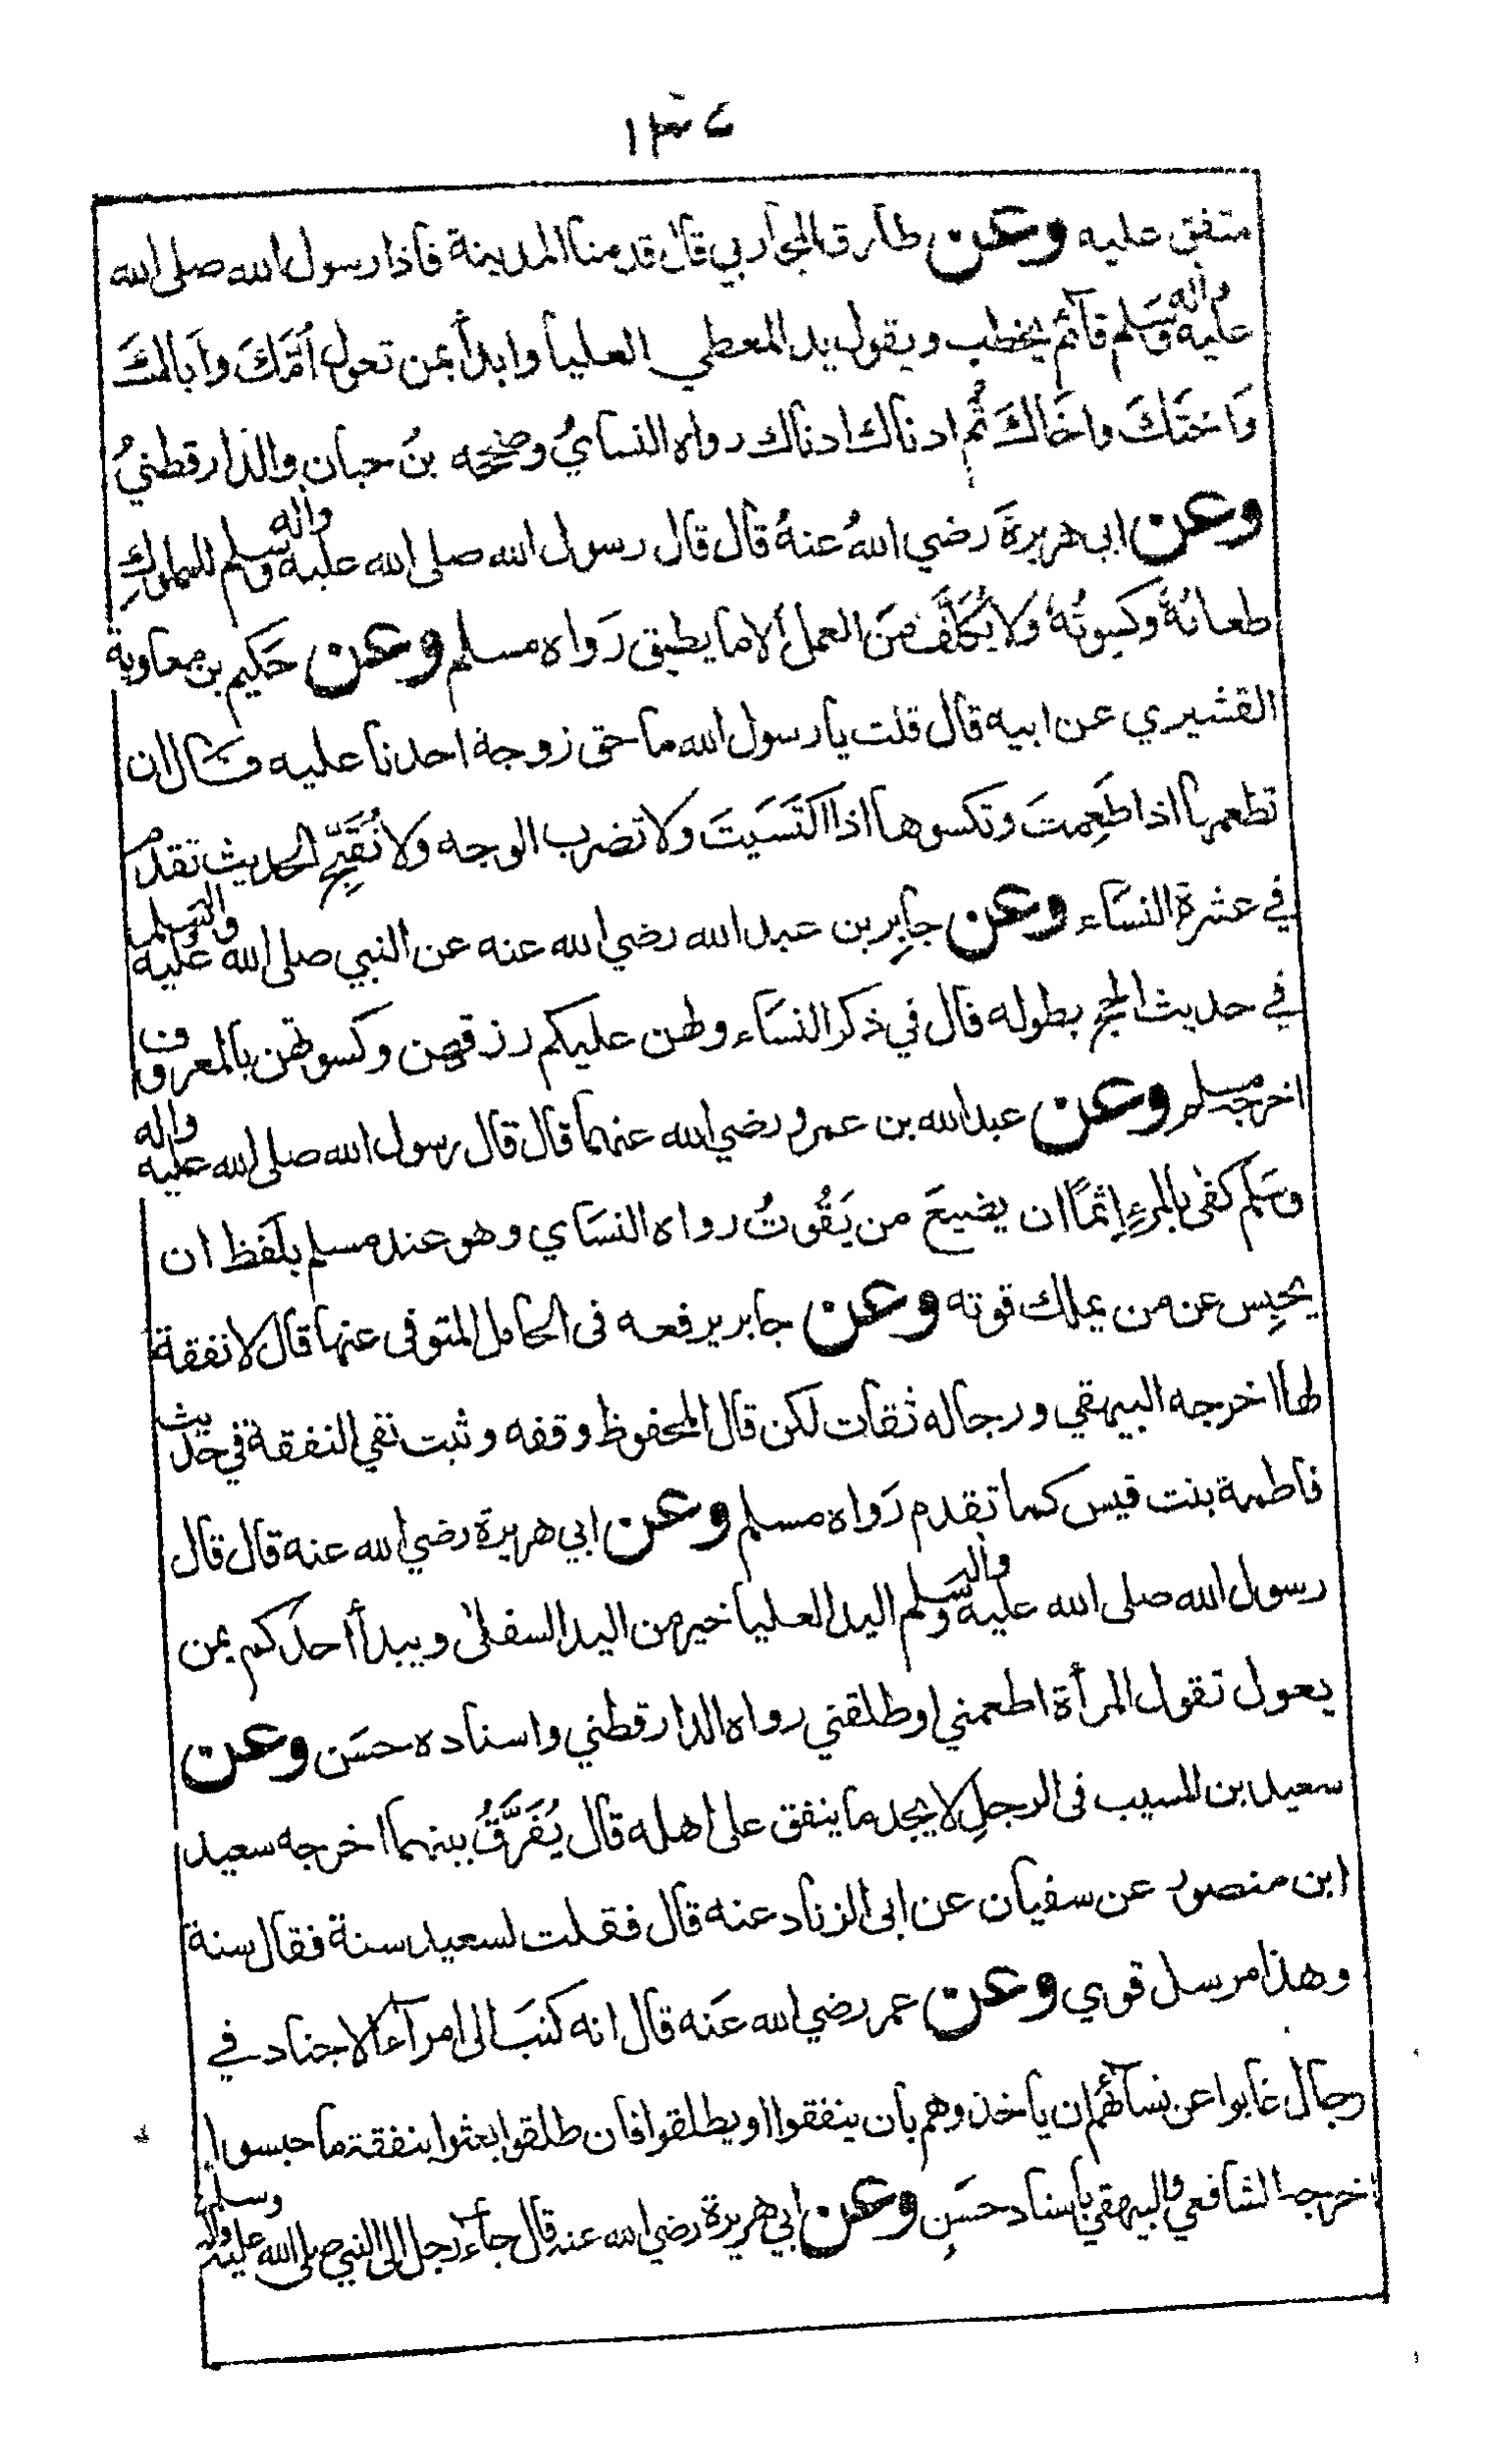 ١٣٤
متفق عليه وعن طارق المحاربي قال قدمنا المدينة فاذا رسول الله صلى الله
عليه واله وسلم قائم يخطب ويقول يد المعطي العليا وابدأ بمن تعول اُمَّكَ واَباكَ
وَاختَكَ واخَاكَ ثُم ادناك ادناك رواه النسايُ وصححه بنُ حبان والدارقطنيُ
وعن ابي هريرةَ رضي اللهُ عنهُ قال قال رسول الله صلى الله عليه واله وسلم للمملوكِ
طعامُهُ وكسوتُهُ وَلا يُكَلَّفُ مِنَ العمل الا ما يطيق رَواه مسلم وعن حَكيم بن معاوية
القشيري عن ابيه قال قلت يا رسول الله ما حق زوجة احدنا عليه قال ان
تطعمها اذا طَعِمتَ وتكسوها اذا اكتَسَيتَ ولا تضرب الوجه ولا تُقَبِّح الحديث تقدم
في عشرة النسَاء وعن جابِر بن عبد الله رضي الله عنه عن النبي صلى الله عليه واله وسلم
في حديث الحج بطوله قال في ذكر النسَاء ولهن عليكم رزقهن وكسوتهن بالمعروف
اخرجه مسلم وعن عبد الله بن عمرو رضي الله عنهما قال قال رسول الله صلى الله عليه واله
وسَلم كفى بالمرءِ اِثمًا ان يضيعَ من يَقُوتُ رواه النسَاي وهو عند مسلم بلفظ ان
يحبِس عن من يملك قوته وعن جابر يرفعه فى الحامل المتوفى عنها قال لا نفقة
لها اخرجه البيهقي ورجاله ثقات لكن قال المحفوظ وقفه وثبت نفي النفقة في حديث
فاطمة بنت قيس كما تقدم رَواه مسلم وعن ابي هريرة رضي الله عنه قال قال
رسول الله صلى الله عليه واله وسَلم اليد العليا خير من اليد السفلى ويبدأ احدكم بمن
يعول تقول المرأة اطعمني او طلقني رواه الدارقطني واسناده حسَن وعن
سعيد بن المسيب فى الرجلِ لا يجد ما ينفق على اهله قال يُفَرَّقُ بينهما اخرجه سعيد
ابن منصور عن سفيان عن ابى الزناد عنه قال فقلت لسعيد سنة فقال سنة
وهذا مرسل قوي وعن عمر رضي الله عَنه قال انه كتبَ الى امرآء الاجناد في
رجال غابوا عن نسآئهم ان ياخذوهم بان ينفقوا او يطلقوا فان طلقوا بعثوا بنفقة ما حبسوا
اخرجه الشافعي والبيهقي باسناد حسَنٍ وعن ابي هريرة رضي الله عنه قال جآء رجل الى النبي صلى الله عليه واله وسلم